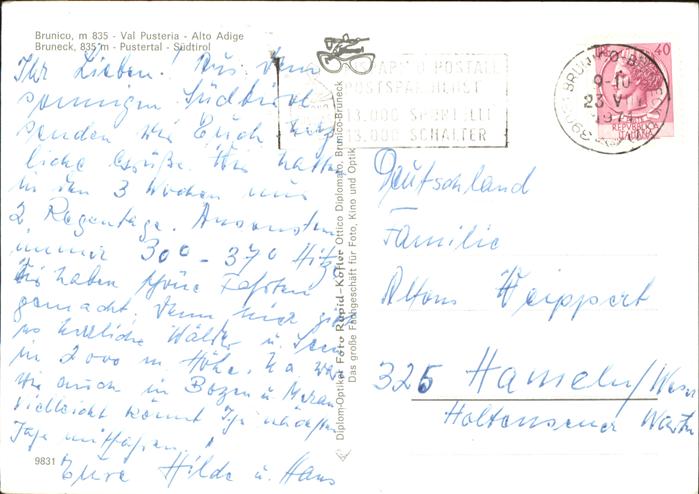 Brunico, m 835 - Val Pusteria - Alto Adige
Bruneck, 835 m - Pustertal - Südtirol
Ihr Lieben! Aus dem
sonnigen Südtirol
senden wir Euch herz
liche Grüße. Wir hatten
in den 3 Wochen nur
2 Regentage. Ansonsten
immer 300 - 370 Hitze
Wir haben schöne Fahrten
gemacht. Denn hier gibt
so herrliche Wälder u. Seen
in 2000 m Höhe.
Wir auch in Bozen u. Meran
vielleicht könnt Ihr nächsten
Tage mitfahren!
Eure Hilde u. Hans
9831
Diplom-Optiker Foto Rapid-Kofler Ottico Diplomato, Brunico-Bruneck
Das große Fachgeschäft für Foto, Kino und Optik
POSTALI
POSTSPARDIENST
13.000 SPORTELLI
13.000 SCHALTER
BRUNICO-BRUNECK
9-10
23 VII
1971
40
REPVBBLICA
ITALIANA
Deutschland
Familie
Alfons Weippert
325 Hameln/Weser
Holtensener Warte